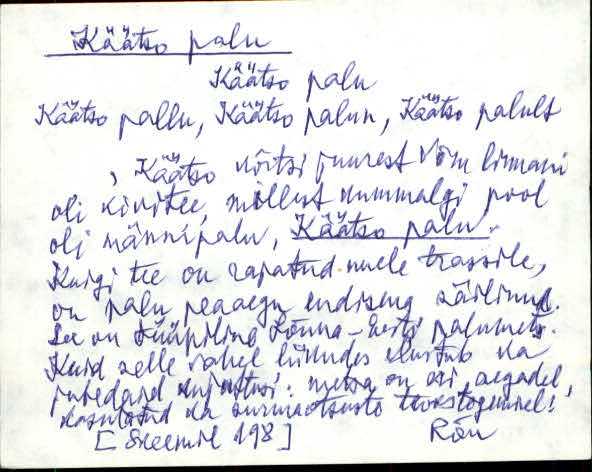 Käätso palu
Käätso palu
Käätso pallu, Käätso palun, Käätso palult
, Käätso kõrtsi juurest Võru linnani
oli kivitee, millest kummalgi pool
oli männipalu, Käätso palu.
Kuigi tee on rajatud uuele trassile,
on palu peaaegu endisena säilinud.
See on tüüpiline Lõuna-Eesti palumets.
Kuid selle vahel liikudes elustub ka
jubedaid kujutlusi: metsa on eri aegadel,
kasutatud ka surmaotsuste
[Skeemil 198] Rõu